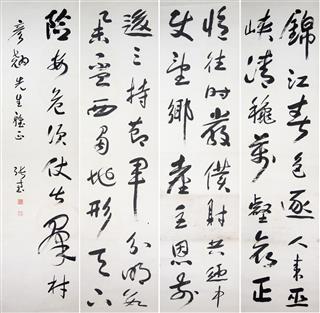 錦江春色逐人來巫
峽清龝萬壑哀正
憶往時嚴僕射共迎中
使望鄉臺主恩前
後三持節軍分明數
舉盃西蜀地形天下
險安危須仗出羣材
彥先生雅正 張